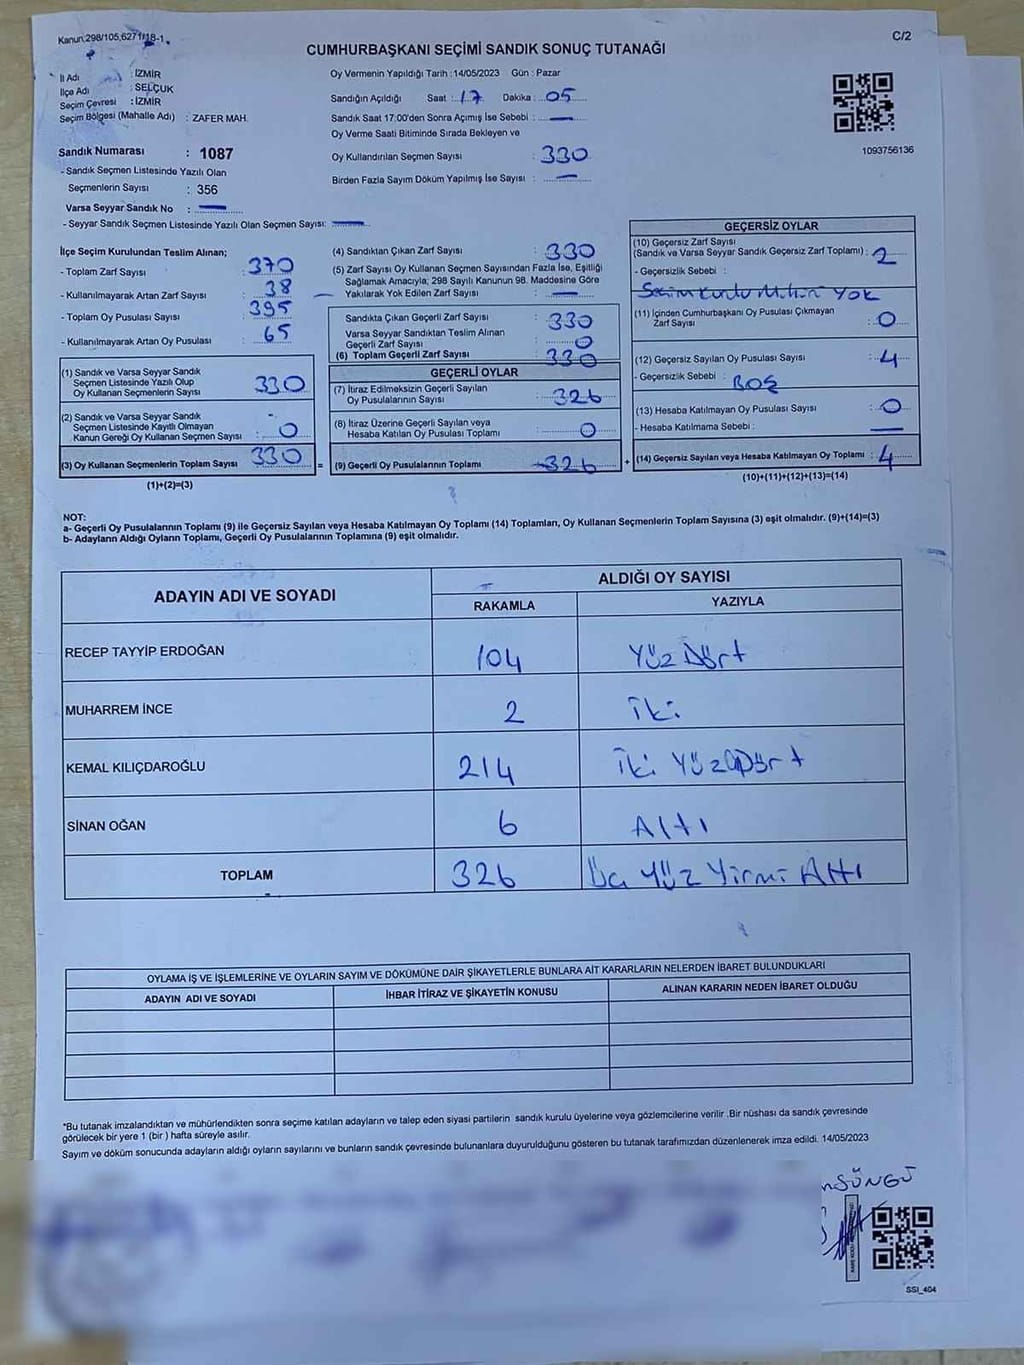 Kanun:298/105,6271/18-1
C/2
CUMHURBAŞKANI SEÇİMİ SANDIK SONUÇ TUTANAĞI
İl Adı : İZMİR
İlçe Adı : SELÇUK
Seçim Çevresi : İZMİR
Seçim Bölgesi (Mahalle Adı) : ZAFER MAH.
Sandık Numarası : 1087
- Sandık Seçmen Listesinde Yazılı Olan
Seçmenlerin Sayısı : 356
Varsa Seyyar Sandık No :
- Seyyar Sandık Seçmen Listesinde Yazılı Olan Seçmen Sayısı:
Oy Vermenin Yapıldığı Tarih : 14/05/2023 Gün : Pazar
Sandığın Açıldığı Saat : 17 Dakika : 05
Sandık Saat 17:00'den Sonra Açımış İse Sebebi :
Oy Verme Saati Bitiminde Sırada Bekleyen ve
Oy Kullandırılan Seçmen Sayısı : 330
Birden Fazla Sayım Döküm Yapılmış İse Sayısı :
1093756136
İlçe Seçim Kurulundan Teslim Alınan;
- Toplam Zarf Sayısı : 370
- Kullanılmayarak Artan Zarf Sayısı : 38
- Toplam Oy Pusulası Sayısı : 395
- Kullanılmayarak Artan Oy Pusulası : 65
(1) Sandık ve Varsa Seyyar Sandık
Seçmen Listesinde Yazılı Olup
Oy Kullanan Seçmenlerin Sayısı : 330
(2) Sandık ve Varsa Seyyar Sandık
Seçmen Listesinde Kayıtlı Olmayan
Kanun Gereği Oy Kullanan Seçmen Sayısı : 0
(3) Oy Kullanan Seçmenlerin Toplam Sayısı : 330
(1)+(2)=(3)
(4) Sandıktan Çıkan Zarf Sayısı : 330
(5) Zarf Sayısı Oy Kullanan Seçmen Sayısından Fazla İse, Eşitliği
Sağlamak Amacıyla; 298 Sayılı Kanunun 98. Maddesine Göre
Yakılarak Yok Edilen Zarf Sayısı :
Sandıkta Çıkan Geçerli Zarf Sayısı : 330
Varsa Seyyar Sandıktan Teslim Alınan
Geçerli Zarf Sayısı : 0
(6) Toplam Geçerli Zarf Sayısı : 330
GEÇERLİ OYLAR
(7) İtiraz Edilmeksizin Geçerli Sayılan
Oy Pusulalarının Sayısı : 326
(8) İtiraz Üzerine Geçerli Sayılan veya
Hesaba Katılan Oy Pusulası Toplamı : 0
= (9) Geçerli Oy Pusulalarının Toplamı : 326
GEÇERSİZ OYLAR
(10) Geçersiz Zarf Sayısı
(Sandık ve Varsa Seyyar Sandık Geçersiz Zarf Toplamı) : 2
- Geçersizlik Sebebi :
Seçim Kurulu Mührü YOK
(11) İçinden Cumhurbaşkanı Oy Pusulası Çıkmayan
Zarf Sayısı : 0
(12) Geçersiz Sayılan Oy Pusulası Sayısı : 4
- Geçersizlik Sebebi : BOŞ
(13) Hesaba Katılmayan Oy Pusulası Sayısı : 0
- Hesaba Katılmama Sebebi :
+ (14) Geçersiz Sayılan veya Hesaba Katılmayan Oy Toplamı : 4
(10)+(11)+(12)+(13)=(14)
NOT:
a- Geçerli Oy Pusulalarının Toplamı (9) ile Geçersiz Sayılan veya Hesaba Katılmayan Oy Toplamı (14) Toplamları, Oy Kullanan Seçmenlerin Toplam Sayısına (3) eşit olmalıdır. (9)+(14)=(3)
b- Adayların Aldığı Oyların Toplamı, Geçerli Oy Pusulalarının Toplamına (9) eşit olmalıdır.
ADAYIN ADI VE SOYADI
ALDIĞI OY SAYISI
RAKAMLA YAZIYLA
RECEP TAYYİP ERDOĞAN 104 Yüz Dört
MUHARREM İNCE 2 İki
KEMAL KILIÇDAROĞLU 214 İki Yüz Dört
SİNAN OĞAN 6 Altı
TOPLAM 326 Üç Yüz Yirmi Altı
OYLAMA İŞ VE İŞLEMLERİNE VE OYLARIN SAYIM VE DÖKÜMÜNE DAİR ŞİKAYETLERLE BUNLARA AİT KARARLARIN NELERDEN İBARET BULUNDUKLARI
ADAYIN ADI VE SOYADI İHBAR İTİRAZ VE ŞİKAYETİN KONUSU ALINAN KARARIN NEDEN İBARET OLDUĞU
*Bu tutanak imzalandıktan ve mühürlendikten sonra seçime katılan adayların ve talep eden siyasi partilerin sandık kurulu üyelerine veya gözlemcilerine verilir .Bir nüshası da sandık çevresinde
görülecek bir yere 1 (bir ) hafta süreyle asılır.
Sayım ve döküm sonucunda adayların aldığı oyların sayılarını ve bunların sandık çevresinde bulunanlara duyurulduğunu gösteren bu tutanak tarafımızdan düzenlenerek imza edildi. 14/05/2023
SÜNGÜ
SSI_404